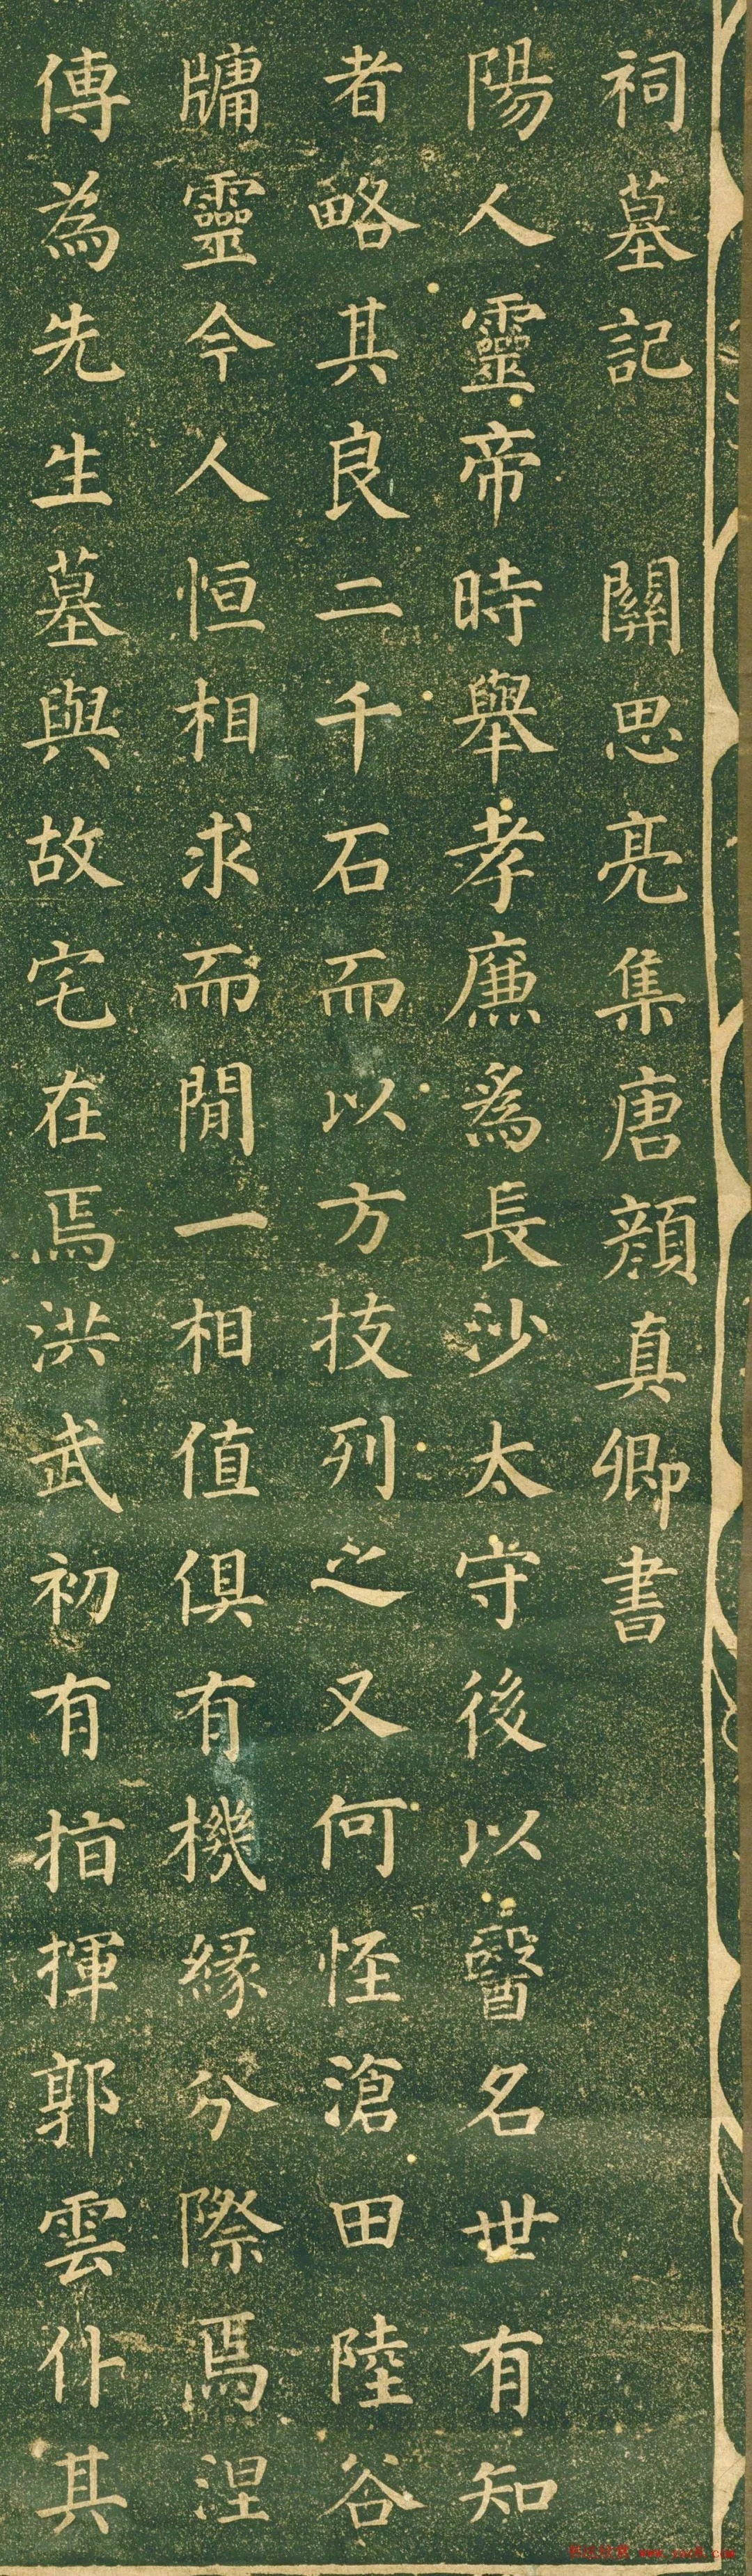 祠墓記 關思亮集唐顏真卿書
陽人靈帝時舉孝廉爲長沙太守後以醫名世有知
者略其良二千石而以方技列之又何怪滄田陸谷
牗靈今人恒相求而閒一相值俱有機緣分際焉涅
傳為先生墓與故宅在焉洪武初有指揮郭雲仆其